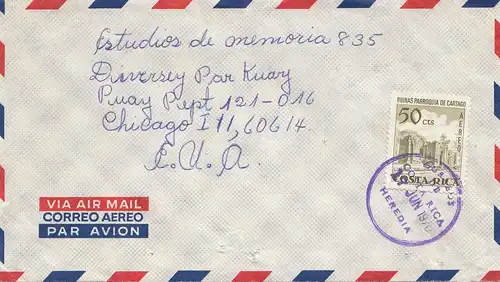 Estudios de memoria 835
Diversey Par Kuay
Puay Pept 121-016
Chicago Ill, 60614.
E. U. A.
RUINAS PARROQUIA DE CARTAGO
50 CTS
AEREO
COSTA RICA
COSTA RICA
JUN 197
HEREDIA
VIA AIR MAIL
CORREO AEREO
PAR AVION